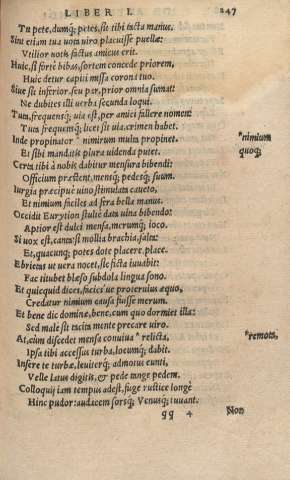 LIBER I. 247
Tu pete, dumq; petes, sit tibi tacta manus.
Sint etiam tua uota uiro placuisse puellæ:
Vtilior uobis factus amicus erit.
Huic, si forte bibas, sortem concede priorem,
Huic detur capiti missa corona tuo.
Siue sit inferior, seu par, prior omnia sumat:
Ne dubites illi uerba secunda loqui.
Tuta, frequensq; uia est, per amici fallere nomen:
Tuta frequensq; licet sit uia, crimen habet.
Inde propinator * nimirum multa propinet. *nimium
Et sibi mandatis plura uidenda putet. quoq;
Certa tibi à nobis dabitur mensura bibendi:
Officium præstent, mensq; pedesq; suum.
Iurgia præcipuè uino stimulata caueto,
Et nimium faciles ad fera bella manus.
Occidit Eurytion stultè data uina bibendo:
Aptior est dulci mensa, merumq; ioco.
Si uox est, canta: si mollia brachia, salta:
Et, quacunq; potes dote placere, place.
Ebrietas ut uera nocet, sic ficta iuuabit:
Fac titubet blæso subdola lingua sono.
Et quicquid dices, facies'ue proteruius æquo,
Credatur nimium causa fuisse merum.
Et bene dic dominæ, bene, cum quo dormiet illa:
Sed male sit tacita mente precare uiro.
At, cùm discedet mensa conuiua * relicta, *remota,
Ipsa tibi accessus turba, locumq; dabit.
Insere te turbæ, leuiterq; admotus eunti,
Velle latus digitis, & pede tange pedem.
Colloquij iam tempus adest, fuge rustice longè
Hinc pudor: audacem forsq; Venusq; iuuant.
gg 4 Non